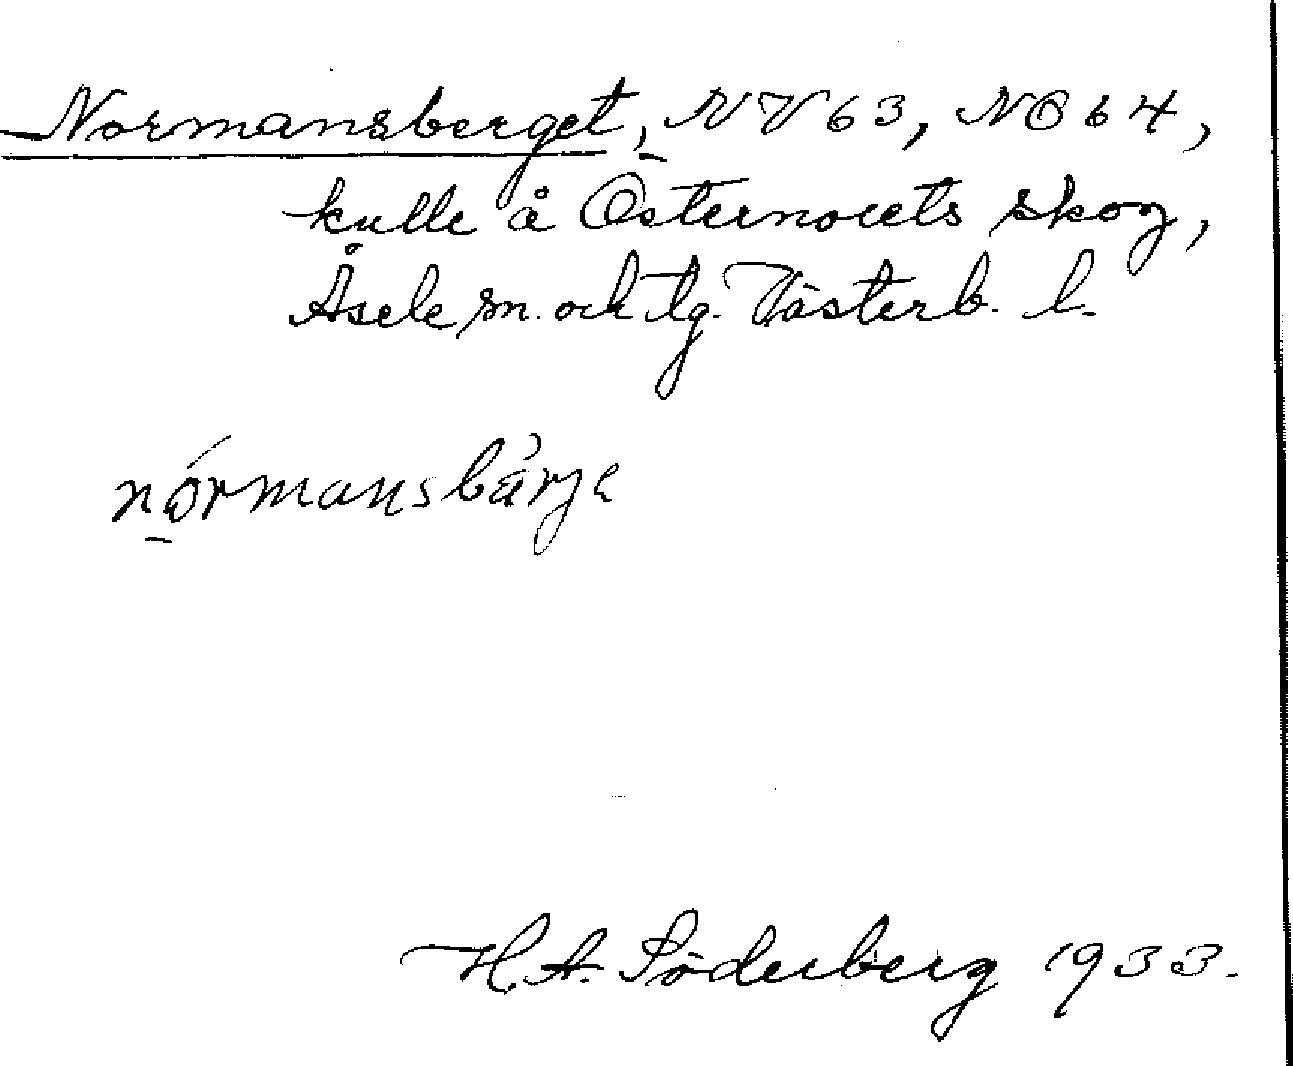 Normansberget, NV 63, NÖ 64,
kulle å Östernorets skog,
Åsele sn. och lg. Västerb. l.
nórmansbàrje
H. A. Söderberg 1933.